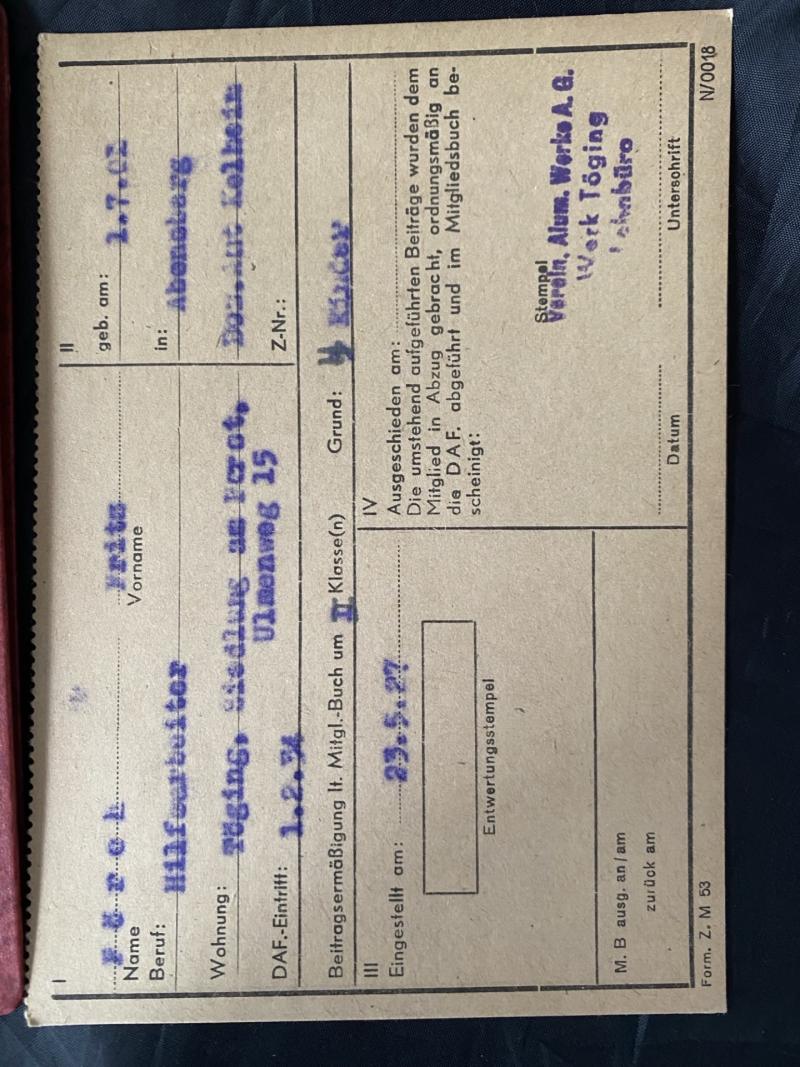 I
Fritz
Name
Vorname
Beruf: Hilfsarbeiter
Wohnung: Töging, Siedlung am Forst,
Ulmenweg 15
DAF.-Eintritt: 1.2.34
II
geb. am: 1.7.02
in: Abensberg
Kelheim
Z-Nr.:
Beitragsermäßigung lt. Mitgl.-Buch um II Klasse(n) Grund: 4 Kinder
III
Eingestellt am: 23.5.27
Entwertungsstempel
M. B ausg. an/am
zurück am
IV
Ausgeschieden am:
Die umstehend aufgeführten Beiträge wurden dem
Mitglied in Abzug gebracht, ordnungsmäßig an
die DAF. abgeführt und im Mitgliedsbuch be-
scheinigt:
Stempel
Verein. Alum. Werke A. G.
Werk Töging
Lohnbüro
Datum
Unterschrift
Form. Z. M 53
N/0018